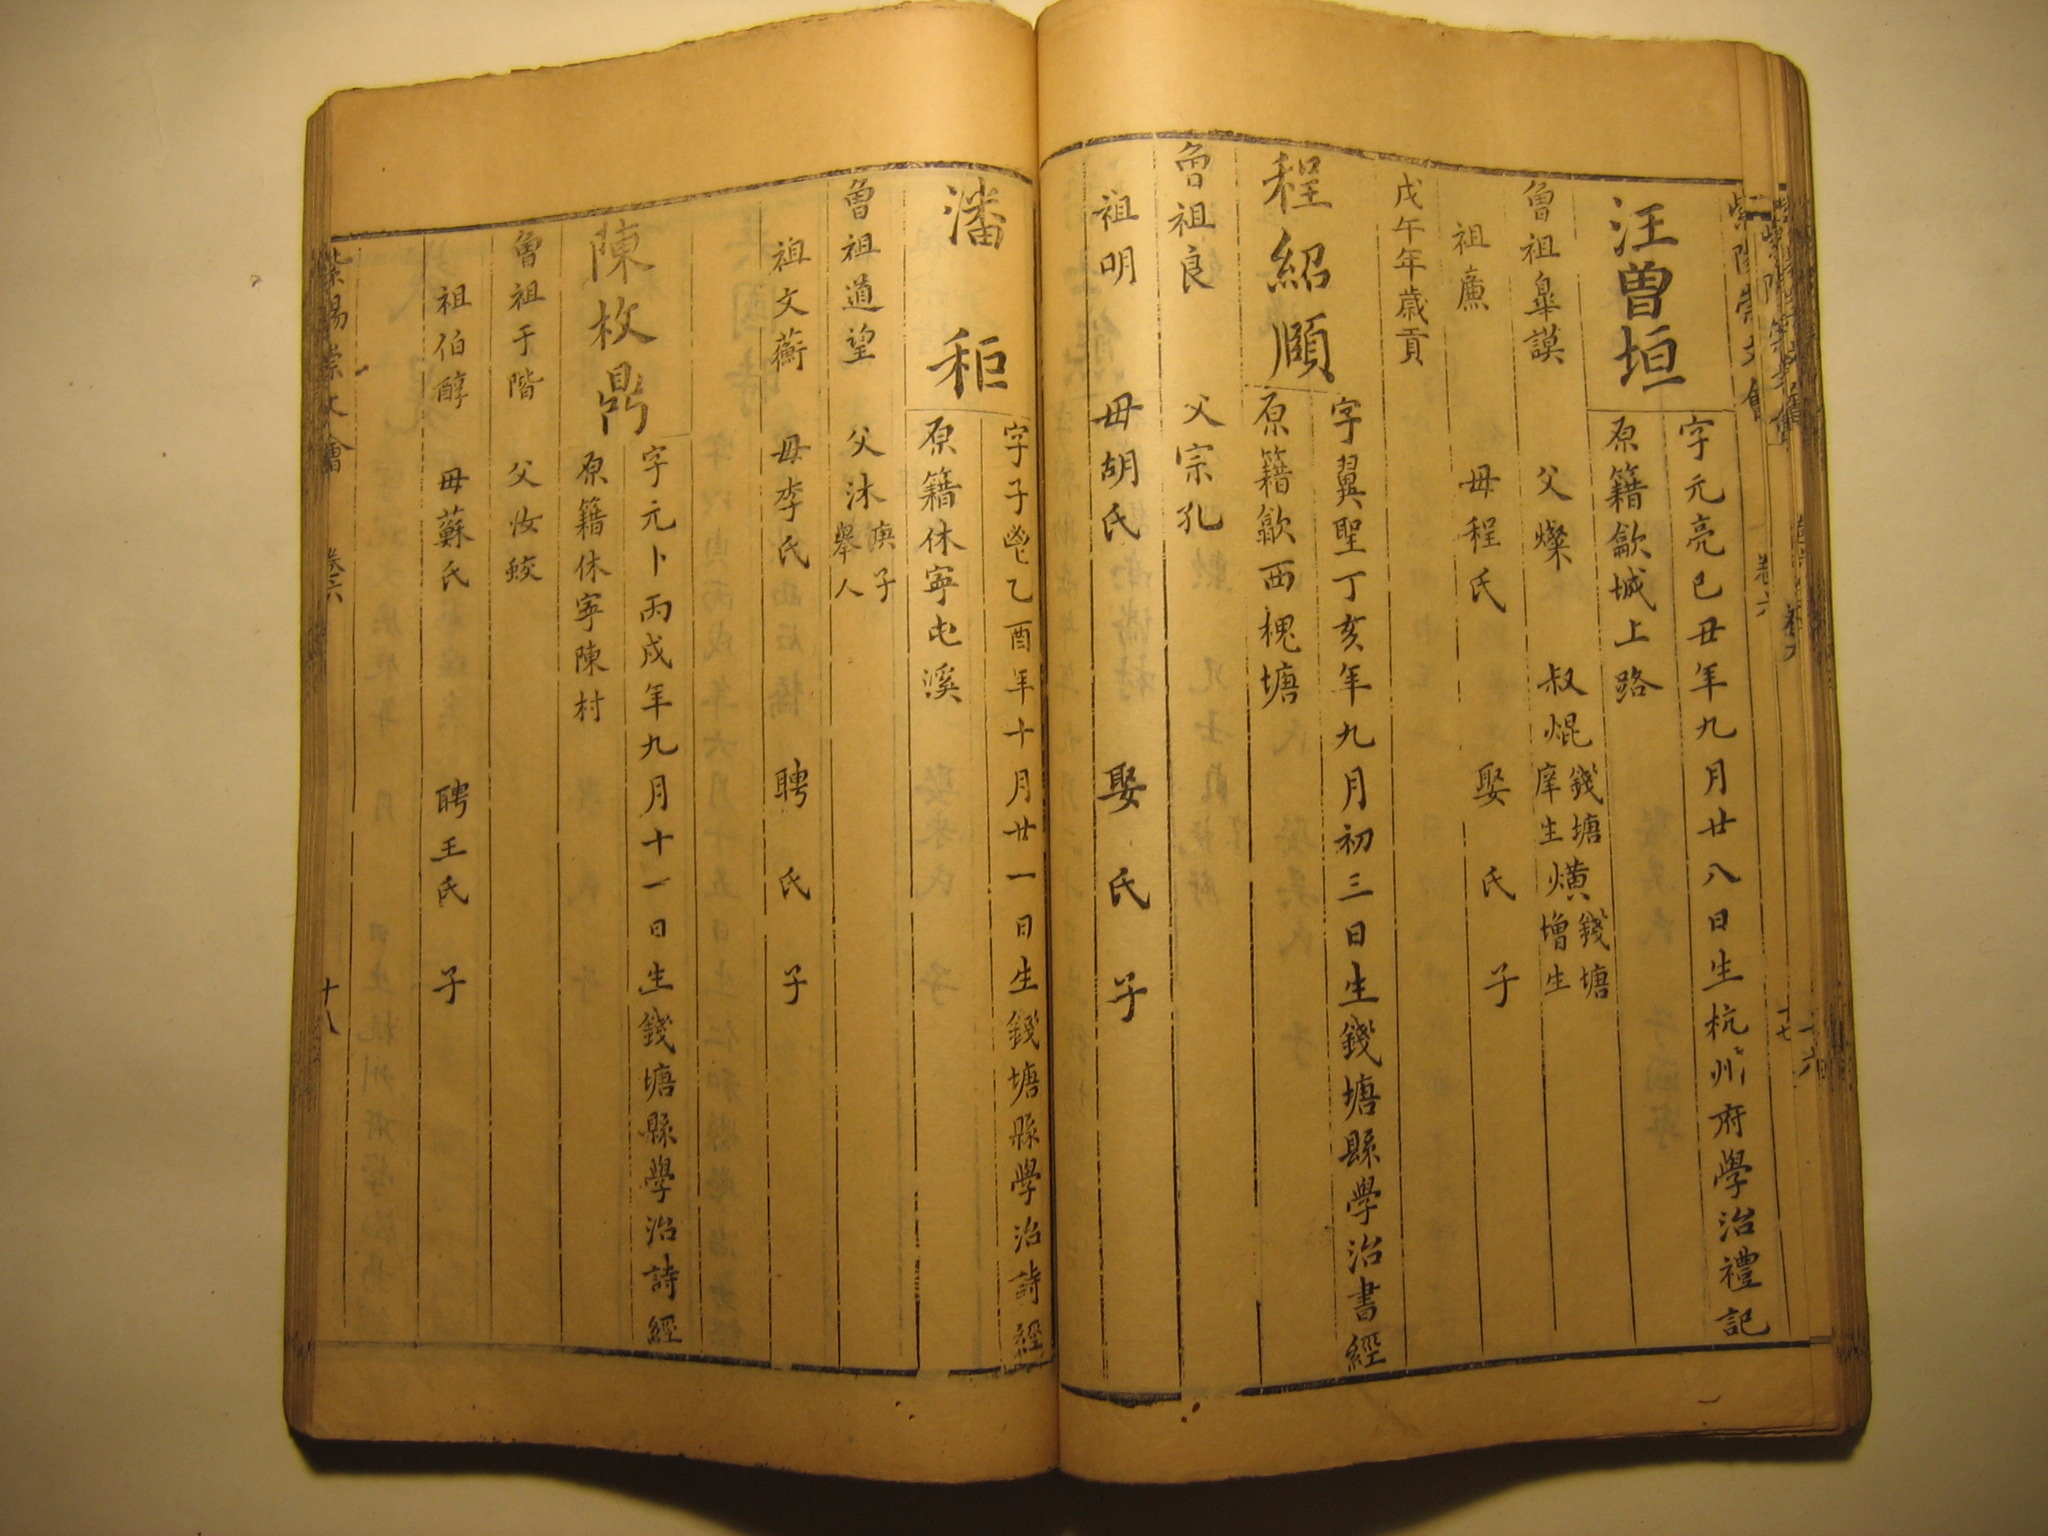 汪曾垣
字元亮己丑年九月廿八日生杭州府學治禮記
原籍歙城上路
曾祖臯謨 父燦 叔焜錢塘庠生 熿錢塘增生
祖廉 母程氏 娶 氏 子
戊午年歲貢
程紹頤
字翼聖丁亥年九月初三日生錢塘縣學治書經
原籍歙西槐塘
曾祖良 父宗孔
祖明 母胡氏 娶 氏 子
潘秬
字子鬯乙酉年十月廿一日生錢塘縣學治詩經
原籍休寧屯溪
曾祖道望 父沐庚子舉人
祖文蘅 母李氏 聘 氏 子
陳枚鼎
字元卜丙戌年九月十一日生錢塘縣學治詩經
原籍休寧陳村
曾祖于階 父汝
祖伯醇 母蘇氏 聘王氏 子
紫陽崇文會 卷六 十八